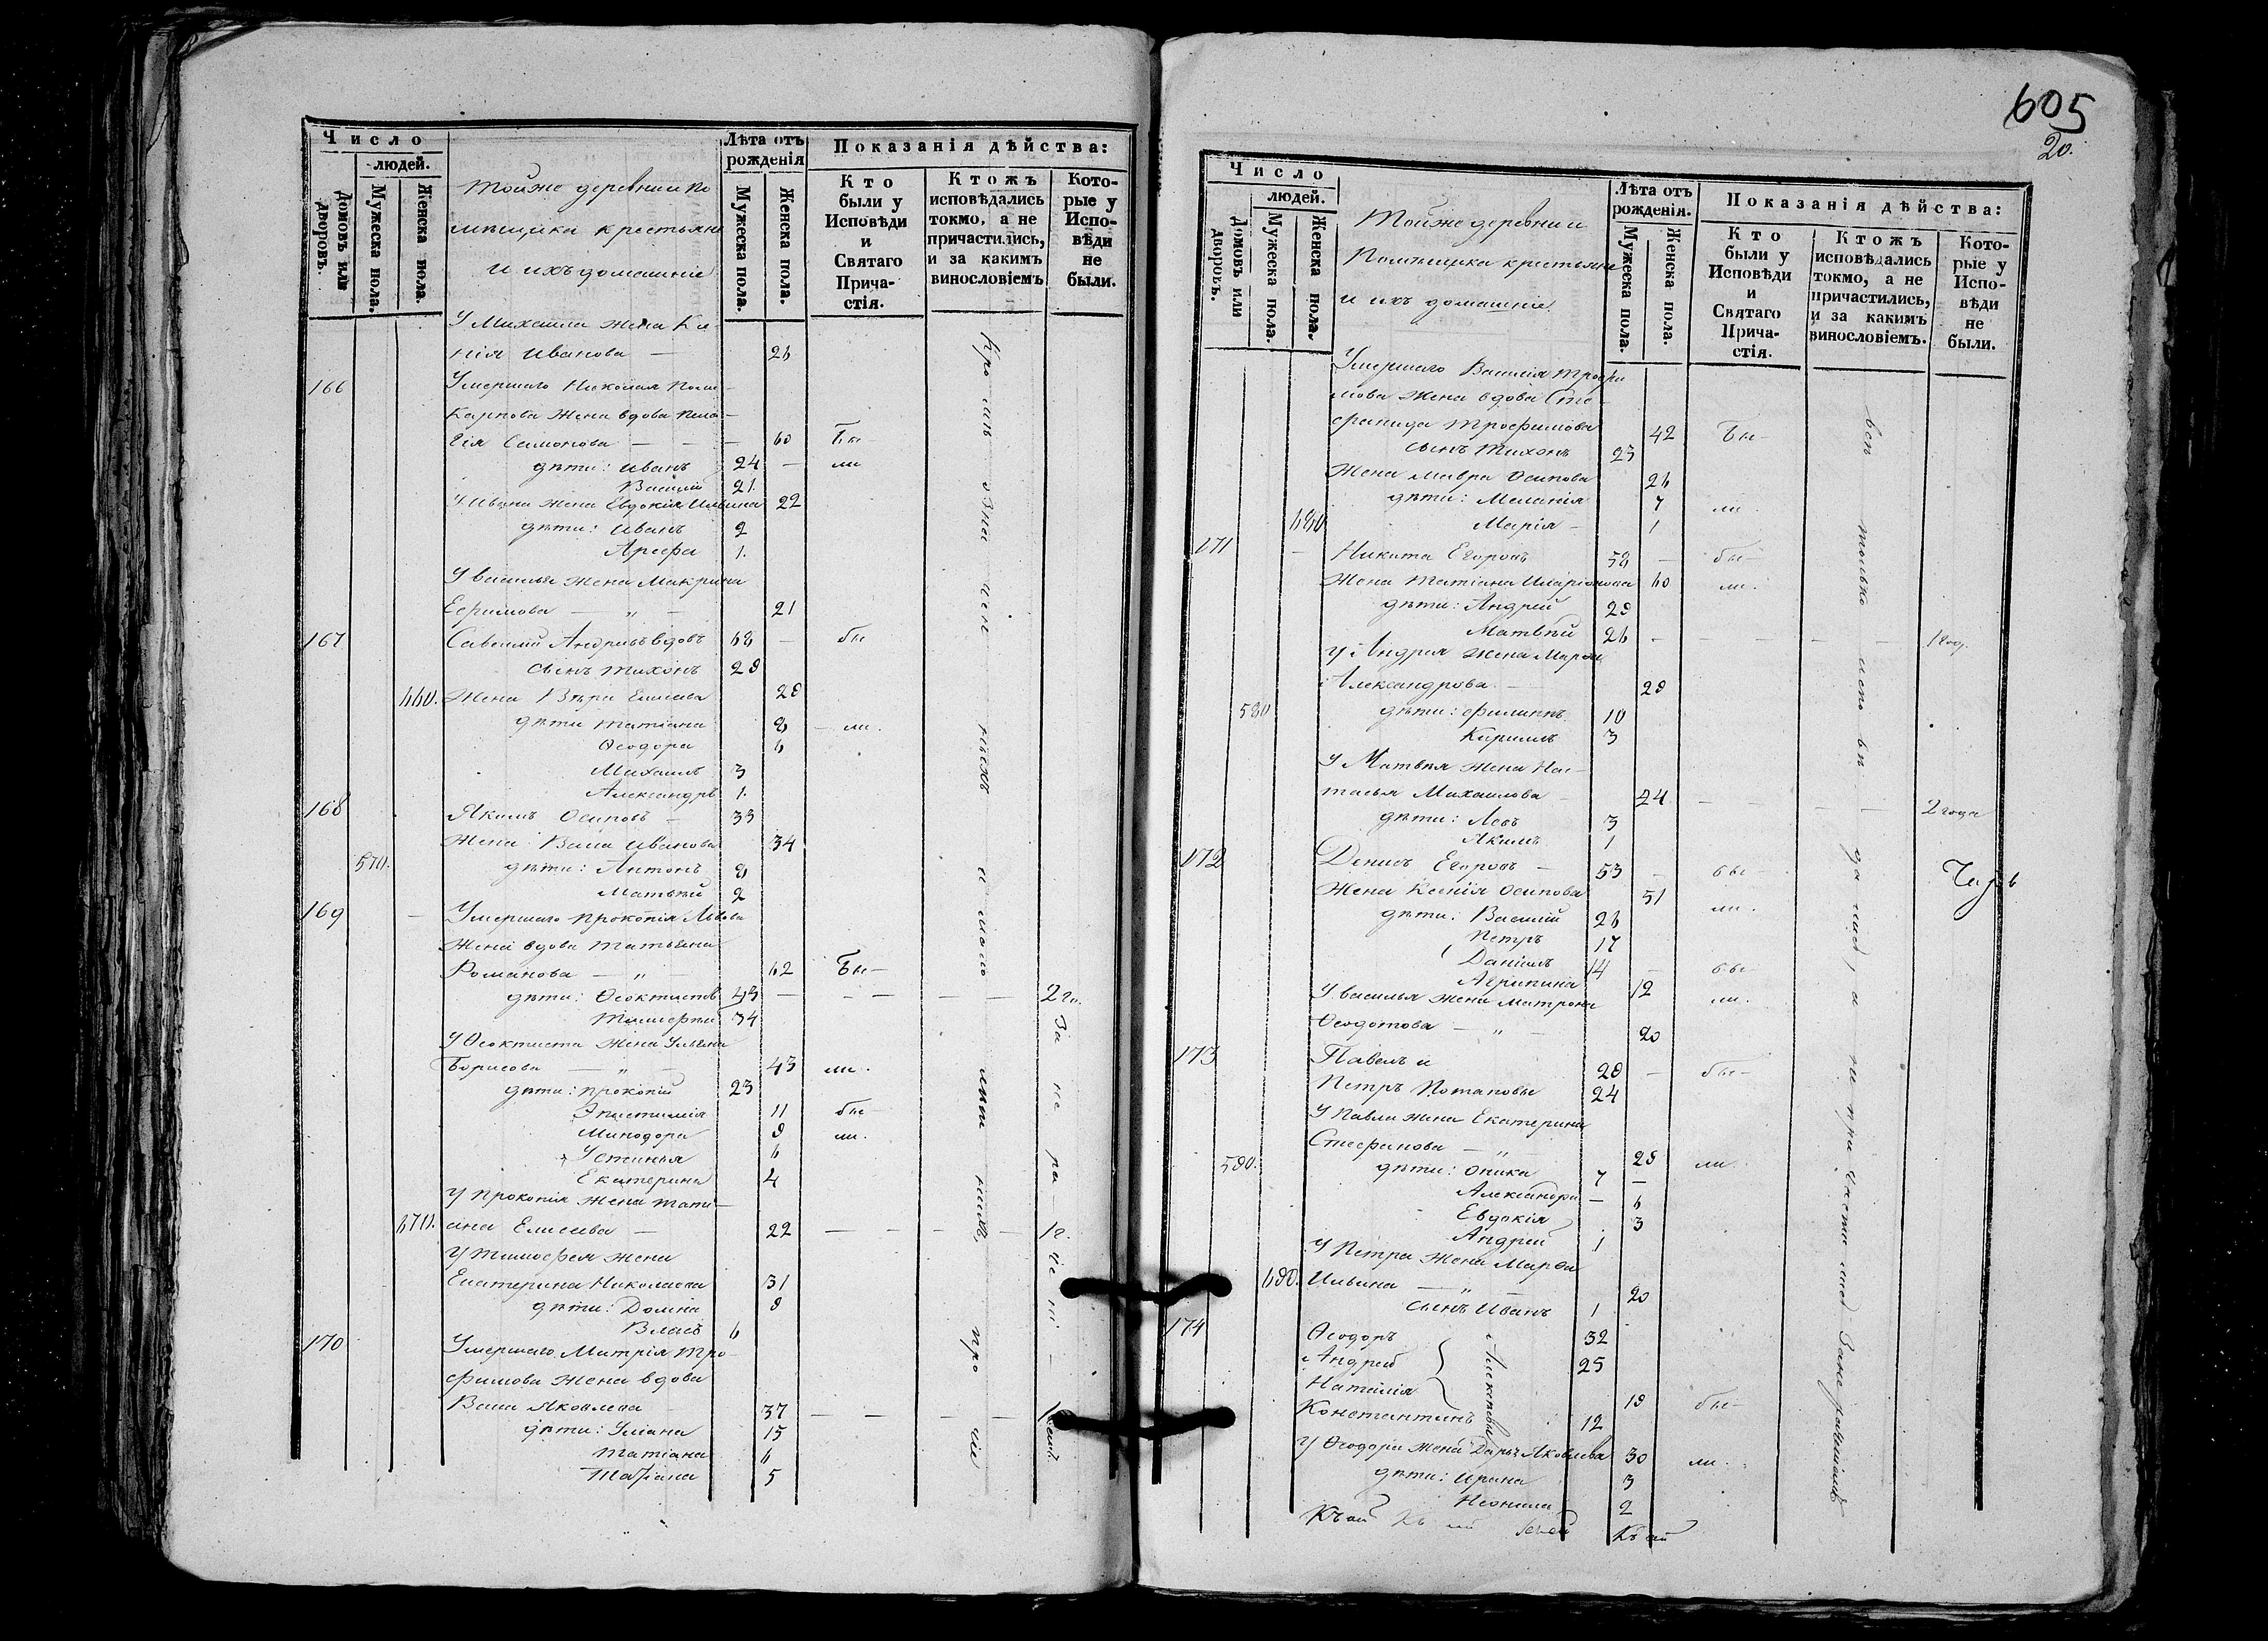 Число
людей.
Домовъ или дворовъ.
Мужеска пола.
Женска пола.
Тойже деревни по
мѣщика крестьяне
и ихъ домашніе
Лѣта отъ рожденія
Мужеска пола.
Женска пола.
Показанія дѣйства:
Кто были у Исповѣди и Святаго Прича-стія.
Ктожъ исповѣдались токмо, а не причастились, и за какимъ винословіемъ
Кото-рые у Испо-вѣди не были.
У Михаила жена Кс-
нія Иванова — 26
166 Умершаго Николая
Карпова жена вдова Пела-
гія Самонова — — — 60 Бы-
дѣти: Иванъ 24 — ли
Василій 21.
У Ивана жена Евдокія Ильина 22
дѣти: Иванъ 2
Арефа 1.
У Василья жена Макрина
Ефимова — „ — 21
167 Савелій Андріевъ вдовъ 68 — бы
сынъ Тихонъ 29
660. Жена Вѣра Елисева 29
дѣти Татіана 8 — ли.
Ѳеодора 6
Михаилъ 3
Александръ 1.
168 Якимъ Осиповъ — 33
Жена Васа Иванова 34
570. дѣти: Антонъ 8
Матвѣй 2
169 — Умершаго Прокопія Львова
жена вдова Татьяна
Романова — „ — 62 Бы-
дѣти: Ѳеоктистъ 43 — — — — — 2 го.
Тимофей 34
У Ѳеоктиста жена Ульяна
Борисова — „ — 43 ли.
дѣти: Прокопій 23
Эпистимія 11 бы
Минодора 9 ли.
Устинья 6
Екатерина 4
У Прокопія жена Тати-
670. ана Елисева — 22 — — — — — 1 г.
У Тимофея жена
Екатерина Николаева 31
дѣти: Домна 9
Власъ 6
170 Умершаго Митрія Тро-
фимова жена вдова
Васа Яковлева 37 — — — —
дѣти: Уліана 15
Татіана 6
Татіана 5
605
20.
Число
людей.
Домовъ или дворовъ.
Мужеска пола.
Женска пола.
Тойже деревни и
Помѣщика крестьяне
и ихъ домашніе
Лѣта отъ рожденія.
Мужеска пола.
Женска пола.
Показанія дѣйства:
Кто были у Исповѣди и Святаго Прича-стія.
Ктожъ исповѣдались токмо, а не причастились, и за какимъ винословіемъ.
Кото-рые у Испо-вѣди не были.
Умершаго Василія Трофи
мова жена вдова Сте-
фанида Трофимова 42 Бы-
сынъ Тихонъ 23
Жена Мавра Осипова 26
дѣти: Меланія 7 ли.
680 Марія — 1
171 — Никита Егоровъ 58 — бы-
Жена Татіана Иларіонова 60 ли.
дѣти: Андрей 29
Матвѣй 26 — — — — — 1 год.
У Андрея жена Марѳа
Александрова — 29
580 дѣти: Филиппъ 10
Кирилъ 3
У Матвѣя жена Нас-
тасья Михаилова — 24 — — — — 2 года
дѣти: Левъ 3
Якимъ 1
172 Денисъ Егоровъ — 53 — бы-
Жена Ксенія Осипова 51
дѣти: Василій 26 ли.
Петръ 17
Даніилъ 14 — бы-
Агрипина 12
У Василья жена Матрона ли.
Ѳеодотова — „ — 20
173 Павелъ и 28 — бы-
Петръ Потаповы 24
У Павла жена Екатерина
Стефанова — „ — 28 ли.
590. дѣти: Оника 7 —
Александра — 6
Евдокія 3
Андрей 1
У Петра жена Марѳа
690. Ильина — „ — 20
сынъ Иванъ 1
174 Ѳеодоръ 32
Андрей 25
Наталія 19 бы-
Константинъ 12
Алексѣевы
У Ѳеодора жена Дарья Яковлева 30 ли.
дѣти: Ирина 3
Неонила 2